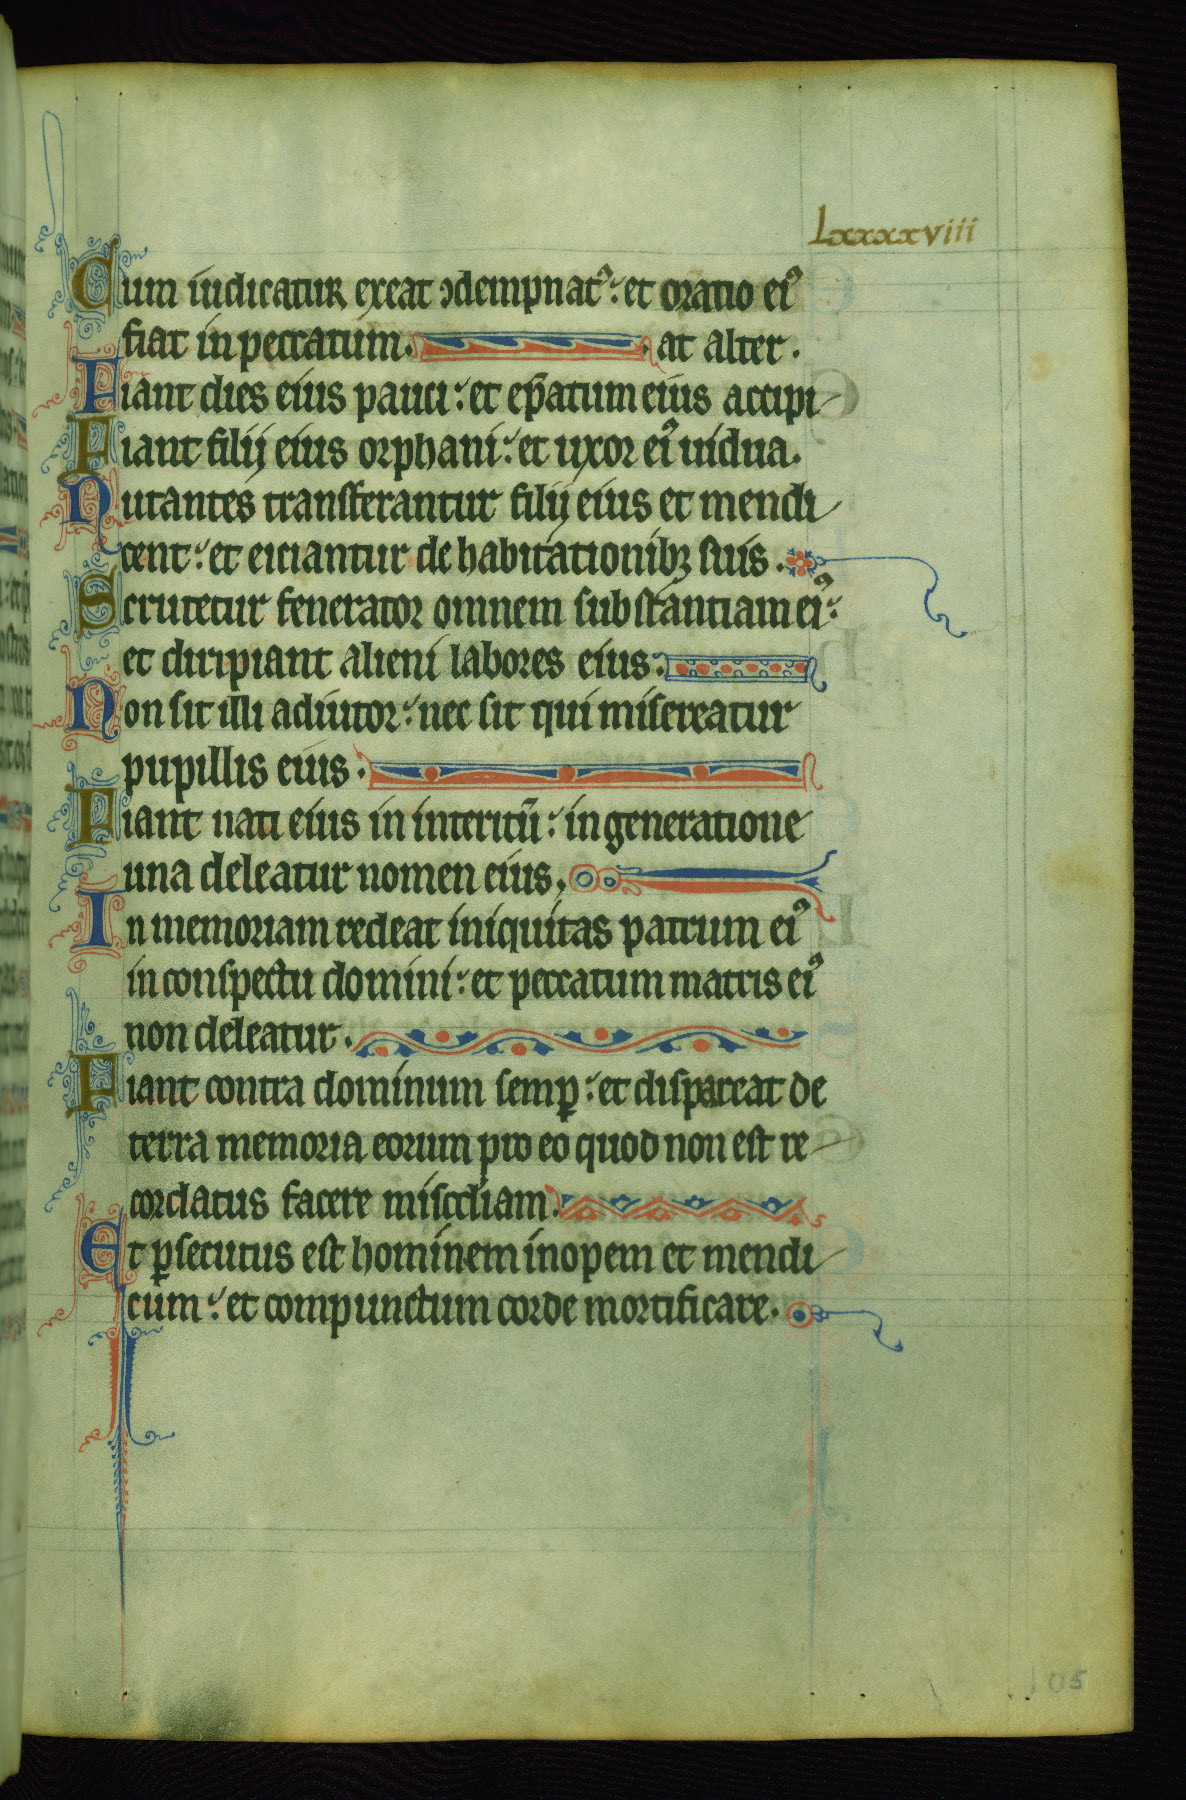 Lxxxxviii
Cum iudicatur exeat ꝯdempnatꝰ: et oratio eiꝰ
fiat in peccatum. at alter.
Fiant dies eius pauci: et ep̄atum eius accipi
Fiant filij eius orphani: et uxor eiꝰ uidua.
Nutantes transferantur filij eius et mendi
cent: et eiciantur de habitationibꝫ suis.
Scrutetur fenerator omnem substantiam eiꝰ:
et diripiant alieni labores eius.
Non sit illi adiutor: nec sit qui misereatur
pupillis eius.
Fiant nati eius in interitū: in generatione
una deleatur nomen eius.
In memoriam redeat iniquitas patrum eiꝰ
in conspectu domini: et peccatum matris eiꝰ
non deleatur.
Fiant contra dominum semꝑ: et dispareat de
terra memoria eorum pro eo quod non est re
cordatus facere miscdiam.
Et ꝑsecutus est hominem inopem et mendi
cum: et compunctum corde mortificare.
105